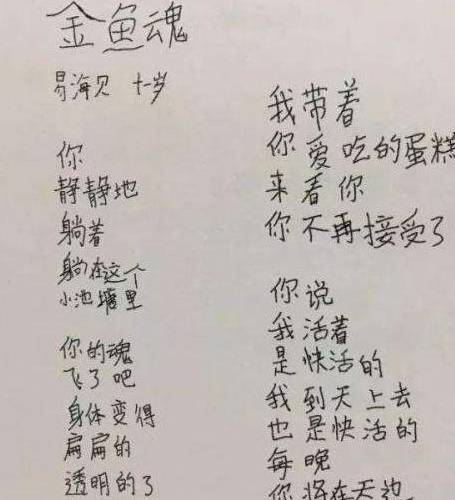 金鱼魂
易海贝 十一岁
你
静静地
躺着
躺在这个
小池塘里
你的魂
飞了吧
身体变得
扁扁的
透明的了
我带着
你爱吃的蛋糕
来看你
你不再接受了
你说
我活着
是快活的
我到天上去
也是快活的
每晚
你将在天边